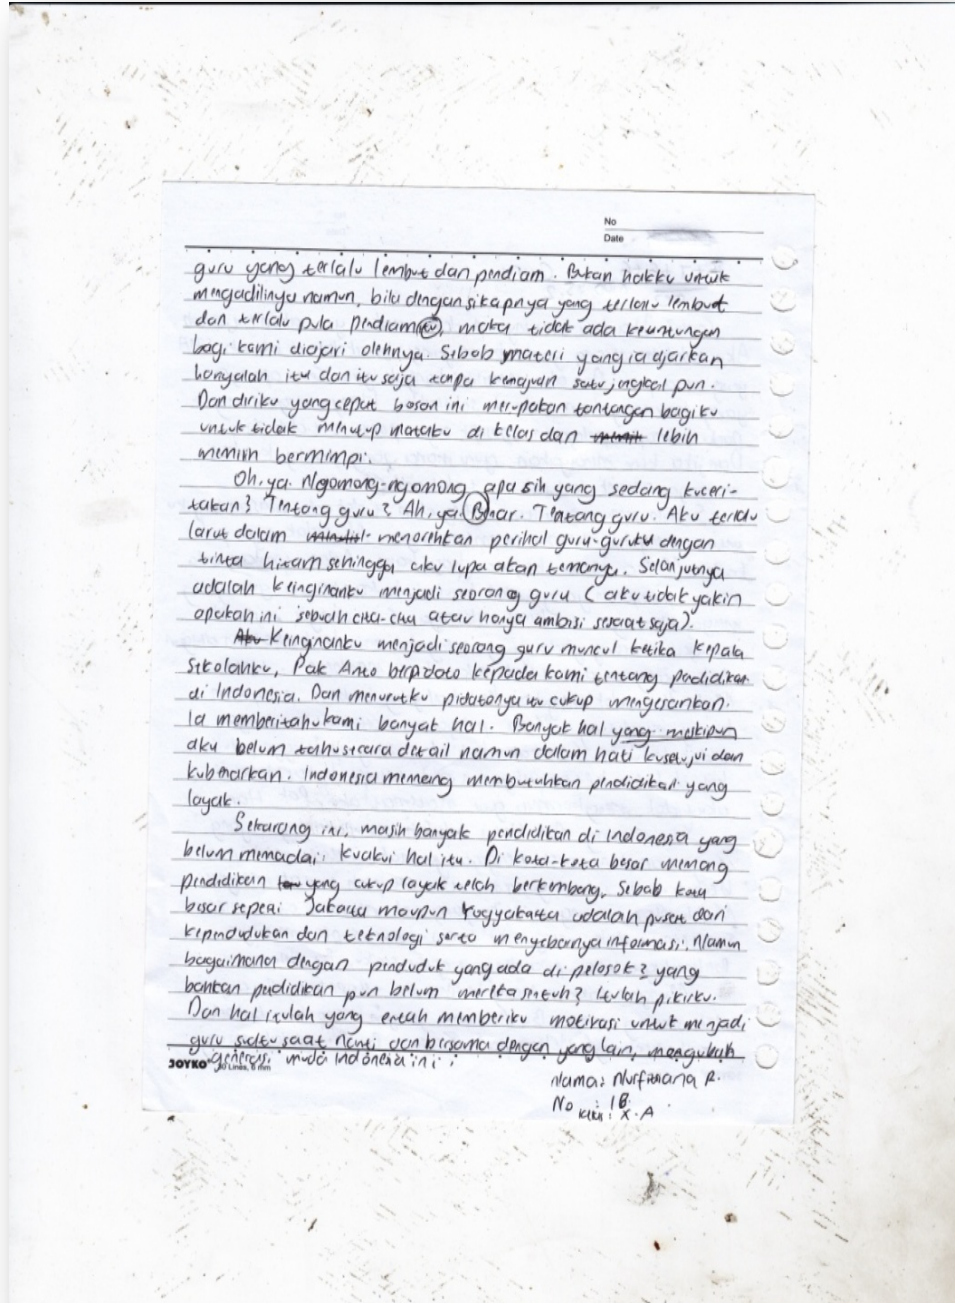 No
Date
guru yang terlalu lembut dan pendiam. Bukan hakku untuk
mengadilinya namun, bila dengan sikapnya yang terlalu lembut
dan terlalu pula pendiam itu, maka tidak ada keuntungan
bagi kami diajari olehnya. Sebab materi yang ia ajarkan
hanyalah itu dan itu saja tanpa kemajuan satu jengkal pun.
Dan diriku yang cepat bosan ini merupakan tantangan bagiku
untuk tidak menutup mataku di kelas dan lebih
memilih bermimpi.
Oh, ya. Ngomong-ngomong apa sih yang sedang kuceri-
takan? Tentang guru? Ah, ya Benar. Tentang guru. Aku terlalu
larut dalam menorehkan perihal guru-guruku dengan
tinta hitam sehingga aku lupa akan temanya. Selanjutnya
adalah keinginanku menjadi seorang guru (aku tidak yakin
apakah ini sebuah cita-cita atau hanya ambisi sesaat saja).
Aku Keinginanku menjadi seorang guru muncul ketika kepala
sekolahku, Pak Anto berpidato kepada kami tentang pendidikan
di Indonesia. Dan menurutku pidatonya itu cukup mengesankan.
Ia memberitahu kami banyak hal. Banyak hal yang meskipun
aku belum tahu secara detail namun dalam hati kusetujui dan
kubenarkan. Indonesia memang membutuhkan pendidikan yang
layak.
Sekarang ini, masih banyak pendidikan di Indonesia yang
belum memadai, kuakui hal itu. Di kota-kota besar memang
pendidikan yang cukup layak telah berkembang. Sebab kota
besar seperti Jakarta maupun Yogyakarta adalah pusat dari
kependudukan dan teknologi serta menyebarnya informasi. Namun
bagaimana dengan penduduk yang ada di pelosok? yang
bahkan pendidikan pun belum mereka sentuh? Itulah pikirku.
Dan hal itulah yang entah memberiku motivasi untuk menjadi
guru suatu saat nanti dan bersama dengan yang lain, mengubah
generasi muda Indonesia ini.
JOYKO 30 Lines, 8 mm
Nama: Nurfitriana R.
No : 18
Kelas : X.A